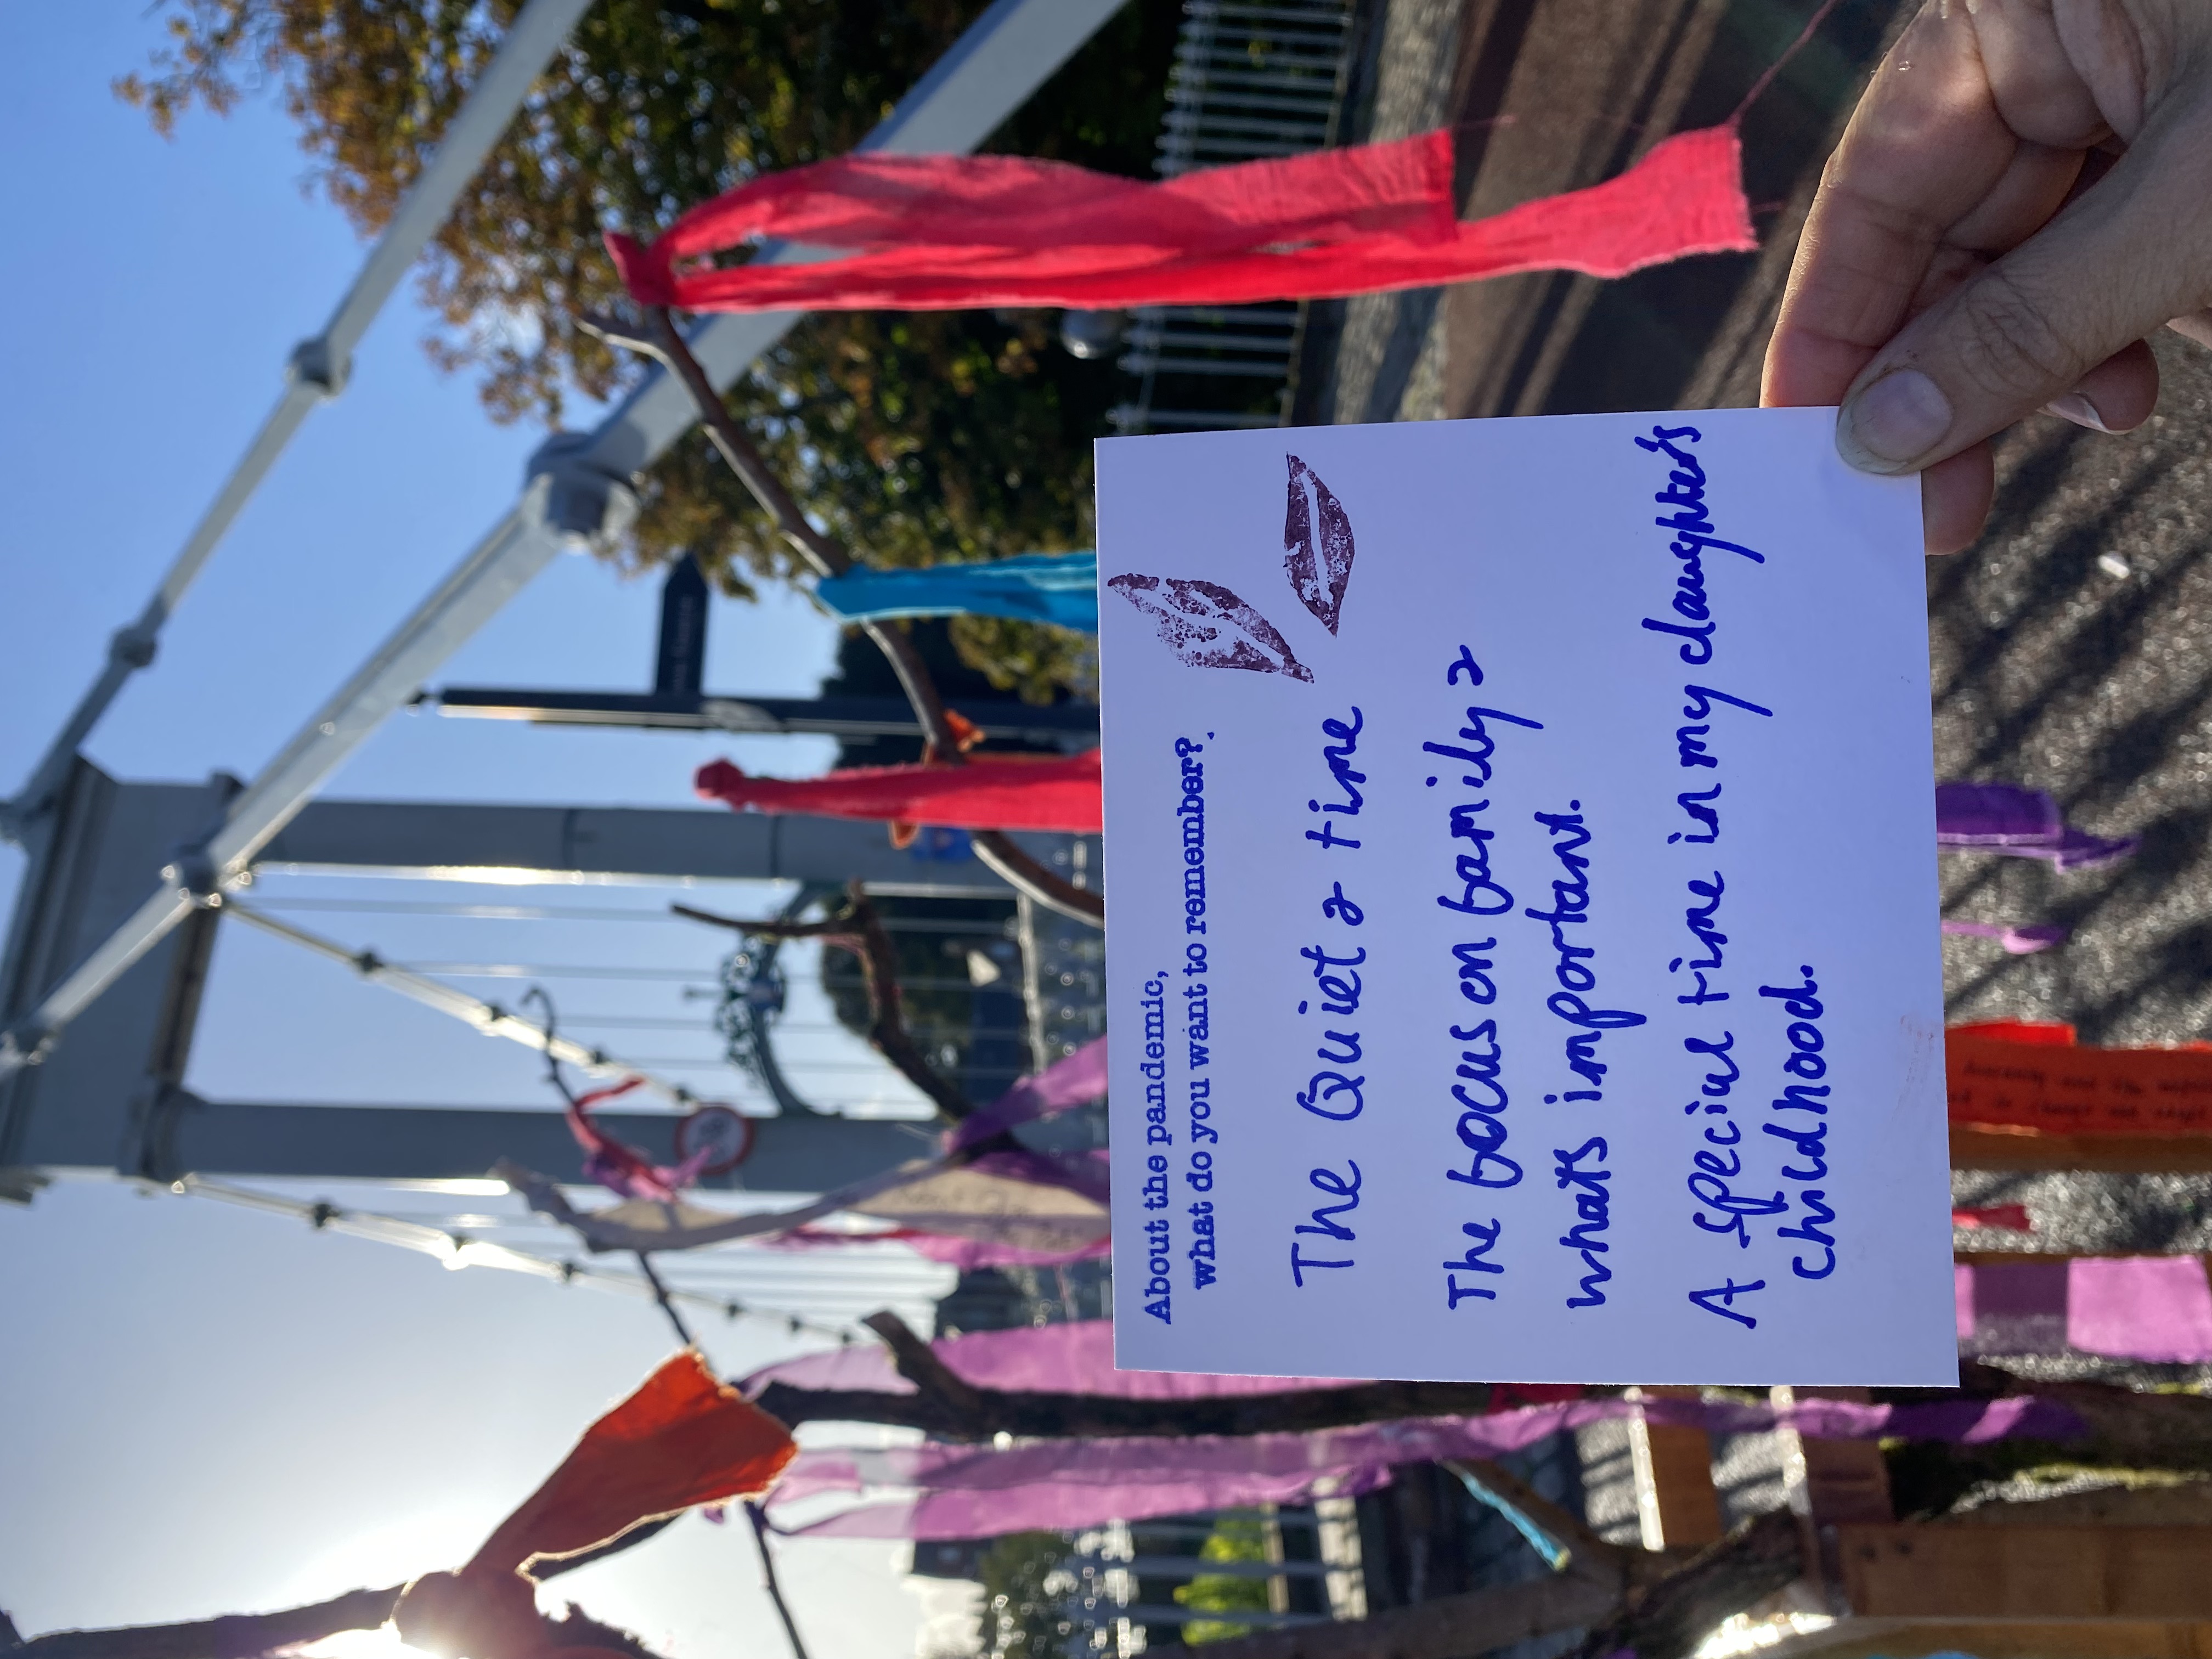 About the pandemic,
what do you want to remember?
The Quiet & time
The focus on family &
what's important.
A special time in my daughter's
childhood.